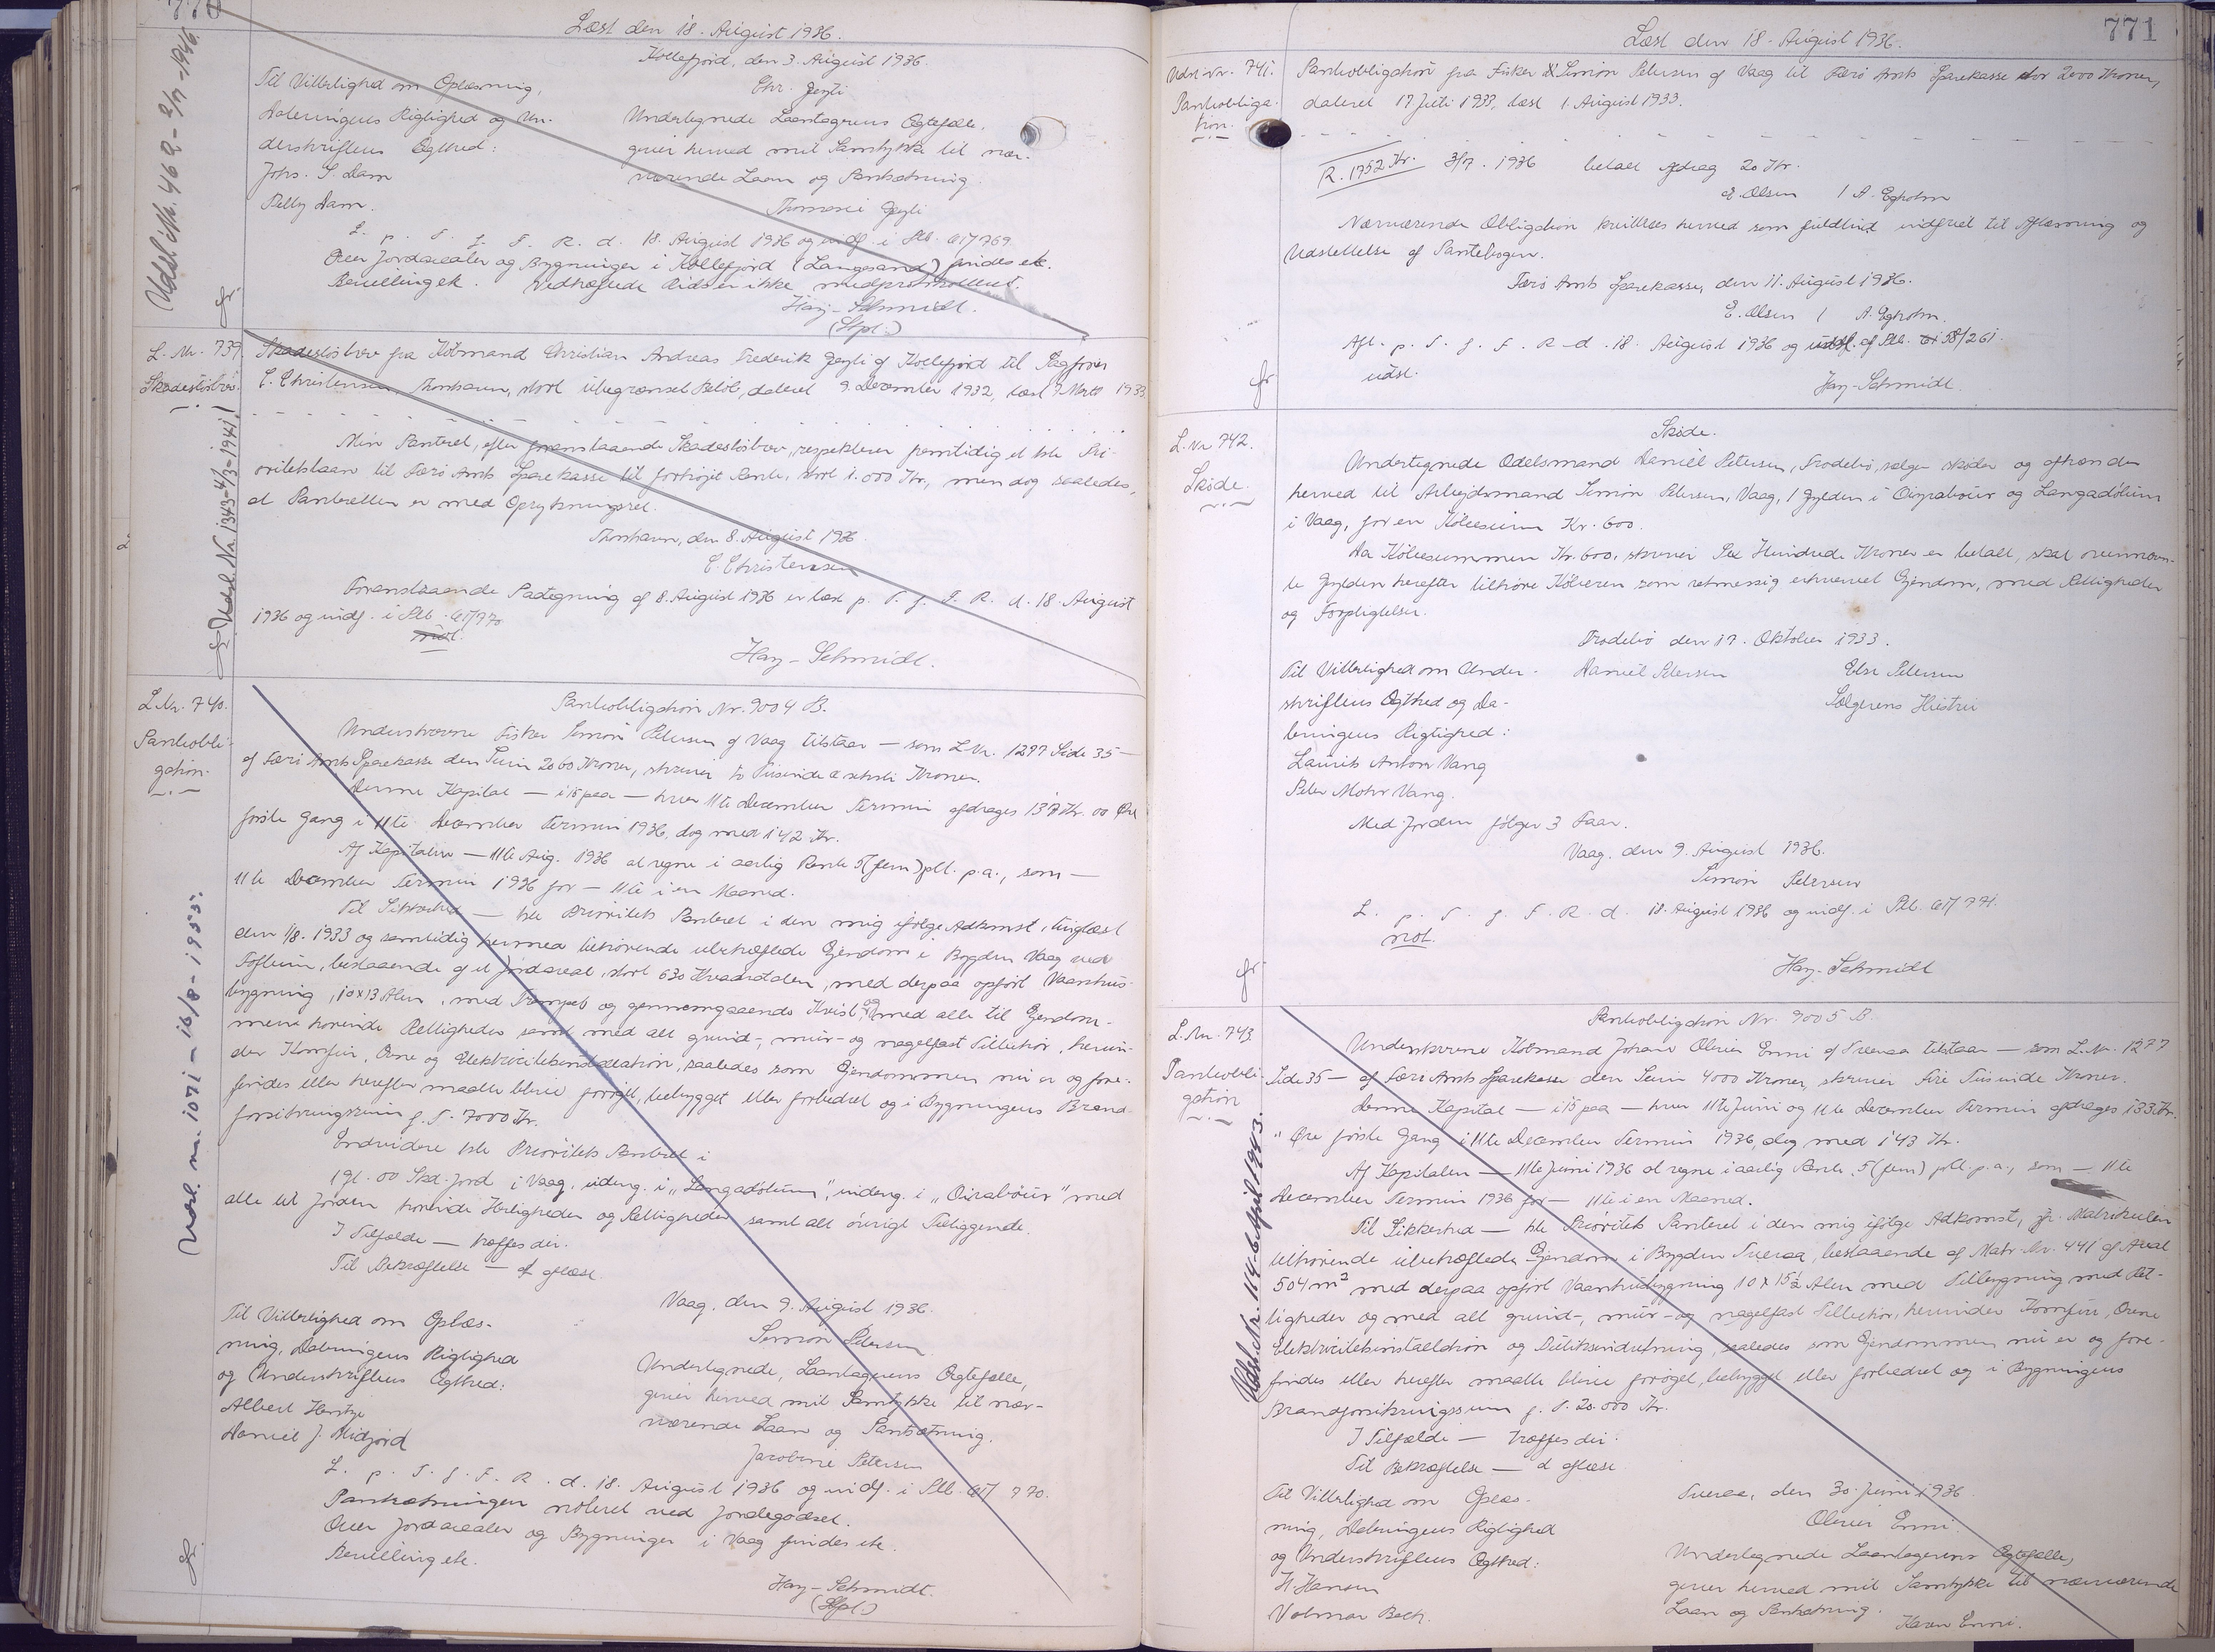 770
Læst den 18. August 1936.
Kollefjord, den 3. August 1936.
Til Vitterlighed om Oplæsning,
Dateringens Rigtighed og Un-
derskriftens Ægthed:
Johs. S. Dam
Pelly Dam.
Chr. Joensen
Undertegnede Laantagerens Ægtefælle,
giver herved mit Samtykke til nær-
værende Laan og Pantsætning.
L. p. T. f. F. R. d. 18. August 1936 og indf. i Ptb. 61/769
Over Jordarealer og Bygninger i Kollefjord (Langesand) findes ek.
Bevilling ek. Vedhæftede ikke medprotokolleret.
Hay-Schmidt.
(Stpl.)
Udsl. 469 - 2/7-1946.
L. Nr. 739.
Skadesløsbrev.
Udsl. Nr. 1343-4/3-1941
Skadesløsbrev fra Købmand Christian Andreas Frederik af Kollefjord til Sagfører
C. Christensen, Thorshavn, stort ubegrænset Beløb, dateret 9. December 1932, læst 7 Marts 1933.
Min Panteret, efter foranstaaende Skadesløsbrev, respekterer fremtidig et 1ste Pri-
oritetslaan til Færø Amts Sparekasse til forhøjet Rente, stort 1.000 Kr., men dog saaledes,
at Panteretten er med Oprykningsret.
Thorshavn, den 8. August 1936.
C. Christensen
Foranstaaende Paategning af 8. August 1936 er læst p. T. f. F. R. d. 18. August
1936 og indf. i Ptb. 61/770
not.
Hay-Schmidt.
L. Nr. 740.
Pantobli-
gation.
Udsl. nr. 1071 - 16/8-1955.
Pantobligation Nr. 9004 B.
Underskrevne Fisker Simon Petersen af Vaag tilstaar — som L. Nr. 1277 Side 35 —
af Færø Amts Sparekasse den Sum 2060 Kroner, skriver to Tusinde & seksti Kroner.
Denne Kapital — i 15 paa — hver 11te December Termin afdrages 137 Kr. 00 Øre
første Gang i 11te December Termin 1936, dog med 142 Kr.
Af Kapitalen — 11te Aug. 1936 at regne i aarlig Rente 5 (fem) pCt. p.a., som —
11te December Termin 1936 for — 11te i en Maaned.
Til Sikkerhed — 1ste Prioritets Panteret i den mig ifølge Adkomst, tinglæst
den 1/8. 1933 og samtidig hermed tilhørende ubehæftede Ejendom i Bygden Vaag ved
Toftum, bestaaende af et Jordareal, stort 630 Kvadratalen, med derpaa opført Vaanhus-
bygning, 10x13 Alen, med Trempel og gennemgaaende Kvist, og med alle til Ejendom-
mene hørende Rettigheder samt med alt grund-, mur- og nagelfast Tilbehør, herun-
der Komfur, Ovne og Elektricitetsinstallation, saaledes som Ejendommen nu er og fore-
findes eller herefter maatte blive forøget, bebygget eller forbedret og i Bygningens Brand-
forsikringssum f. T. 7000 Kr.
Endvidere 1ste Prioritets Panteret i
1 gl. 00 Skd. Jord i Vaag, inderg. i "Langadólum", inderg. i "Oirabóur" med
alle til Jorden hørende Herligheder og Rettigheder samt alt øvrigt Tilliggende.
I Tilfælde — træffes der.
Til Bekræftelse — at oplæse
Vaag, den 9. August 1936.
Simon Petersen
Til Vitterlighed om Oplæs-
ning, Dateringens Rigtighed
og Underskriftens Ægthed:
Albert Hentze
Daniel J. Midjord
Undertegnede, Laantagerens Ægtefælle,
giver herved mit Samtykke til nær-
værende Laan og Pantsætning.
Jacobine Petersen
L. p. T. f. F. R. d. 18. August 1936 og indf. i Ptb. 61/770.
Pantsætningen noteret ved Jordegodset.
Over Jordarealer og Bygninger i Vaag findes ek.
Bevilling ek.
Hay-Schmidt.
(Stpl.)
771
Læst den 18. August 1936.
Udsl. Nr. 741.
Pantobliga-
tion.
Pantobligation fra Fisker Simon Petersen af Vaag til Færø Amts Sparekasse stor 2000 Kroner,
dateret 17 Juli 1933, læst 1. August 1933.
R. 1752 Kr. 3/7. 1936 betalt Afdrag 20 Kr.
E. Olsen / A. Egholm
Nærværende Obligation kvitteres herved som fuldtud indfriet til Aflæsning og
Udslettelse af Pantebogen.
Færø Amts Sparekasse, den 11. August 1936.
E. Olsen / A. Egholm.
Afl. p. T. f. F. R. d. 18. August 1936 og udsl. af Ptb. 58/261.
udsl.
Hay-Schmidt.
L. Nr 742.
Skøde.
Skøde.
Undertegnede Odelsmand Daniel Petersen, Frodebø, sælger skøder og afhænder
herved til Arbejdsmand Simon Petersen, Vaag, 1 Gylden i Oirabóur og Langadólum
i Vaag, for en Købesum Kr. 600.
Da Købesummen Kr. 600, skriver Sex Hundrede Kroner er betalt, skal ovennævn-
te Gylden herefter tilhøre Køberen som retmessig erhvervet Ejendom, med Rettigheder
og Forpligtelser.
Frodebø den 17. Oktober 1933.
Til Vitterlighed om Under-
skriftens Ægthed og Da-
teringens Rigtighed:
Laurits Anton Vang
Peter Mohr Vang.
Daniel Petersen
Else Petersen
Sælgerens Hustru
Med Jorden følger 3 Faar.
Vaag, den 9. August 1936.
Simon Petersen
L. p. T. f. F. R. d. 18. August 1936 og indf. i Ptb. 61/771.
not.
Hay-Schmidt
L. Nr. 743.
Pantobli-
gation
Udsl. Nr. 114-6 April 1943.
Pantobligation Nr. 9005 B.
Underskrevne Købmand Johan Oliver Enni af Tveraa tilstaar — som L. Nr. 1277
Side 35 — af Færø Amts Sparekasse den Sum 4000 Kroner, skriver Fire Tusinde Kroner.
Denne Kapital — i 15 paa — hver 11te Juni og 11te December Termin afdrages 133 Kr.
" Øre første Gang i 11te December Termin 1936, dog med 143 Kr.
Af Kapitalen — 11te Juni 1936 at regne i aarlig Rente 5 (fem) pCt. p.a., som — 11te
December Termin 1936 for — 11te i en Maaned.
Til Sikkerhed — 1ste Prioritets Panteret i den mig ifølge Adkomst, jfr. Matrikulen
tilhørende ubehæftede Ejendom i Bygden Tveraa, bestaaende af Matr. Nr. 441 af Areal
504 m² med derpaa opført Vaanhusbygning 10 x 15½ Alen med Tilbygning med Ret-
tigheder og med alt grund-, mur- og nagelfast Tilbehør, herunder Komfur, Ovne
Elektricitetsinstallation og Butiksindretning, saaledes som Ejendommen nu er og fore-
findes eller herefter maatte blive forøget, bebygget eller forbedret og i Bygningens
Brandforsikringssum f. T. 20.000 Kr.
I Tilfælde — træffes der.
Til Bekræftelse — at oplæse
Til Vitterlighed om Oplæs-
ning, Dateringens Rigtighed
og Underskriftens Ægthed:
H Hansen
Volmar Bech.
Tveraa, den 30. Juni 1936.
Oliver Enni.
Undertegnede Laantagerens Ægtefælle,
giver herved mit Samtykke til nærværende
Laan og Pantsætning.
Karen Enni.